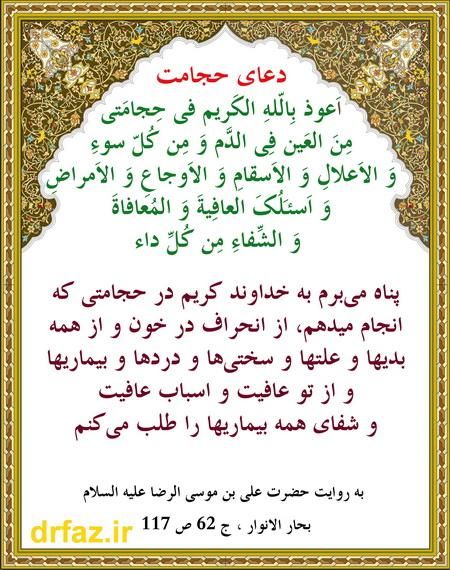 دعای حجامت
اَعوذ بِاللّه الکَریم فی حِجامَتی
مِنَ العَین فِی الدَّم وَ مِن کُلّ سوءِ
وَ الاَعلالِ وَ الاَسقامِ وَ الاَوجاعِ وَ الاَمراضِ
وَ اَسئَلُکَ العافِیةَ وَ المُعافاةَ
وَ الشِّفاءِ مِن کُلِّ داء
پناه می‌برم به خداوند کریم در حجامتی که
انجام میدهم، از انحراف در خون و از همه
بدیها و علتها و سختی‌ها و دردها و بیماریها
و از تو عافیت و اسباب عافیت
و شفای همه بیماریها را طلب می‌کنم
به روایت حضرت علی بن موسی الرضا علیه السلام
بحار الانوار ، ج 62 ص 117
drfaz.ir